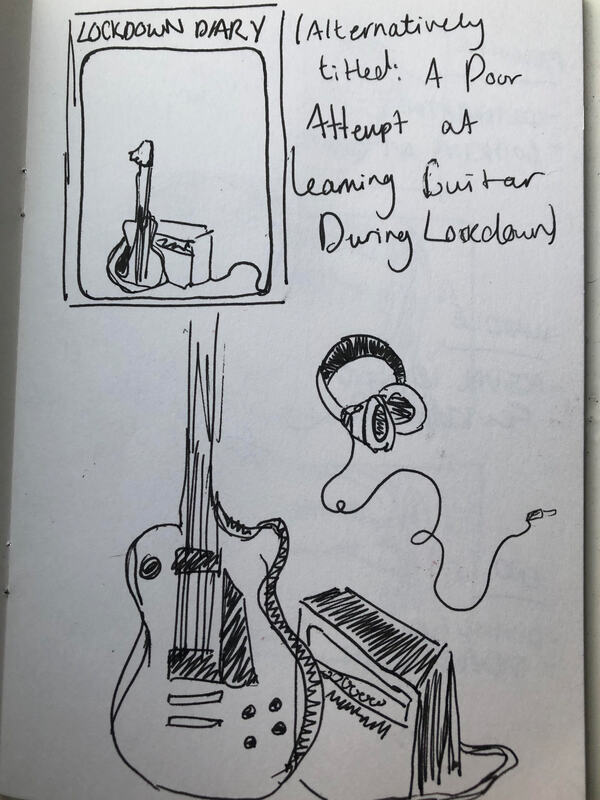 LOCKDOWN DIARY
(Alternatively
titled: A Poor
Attempt at
Learning Guitar
During Lockdown)